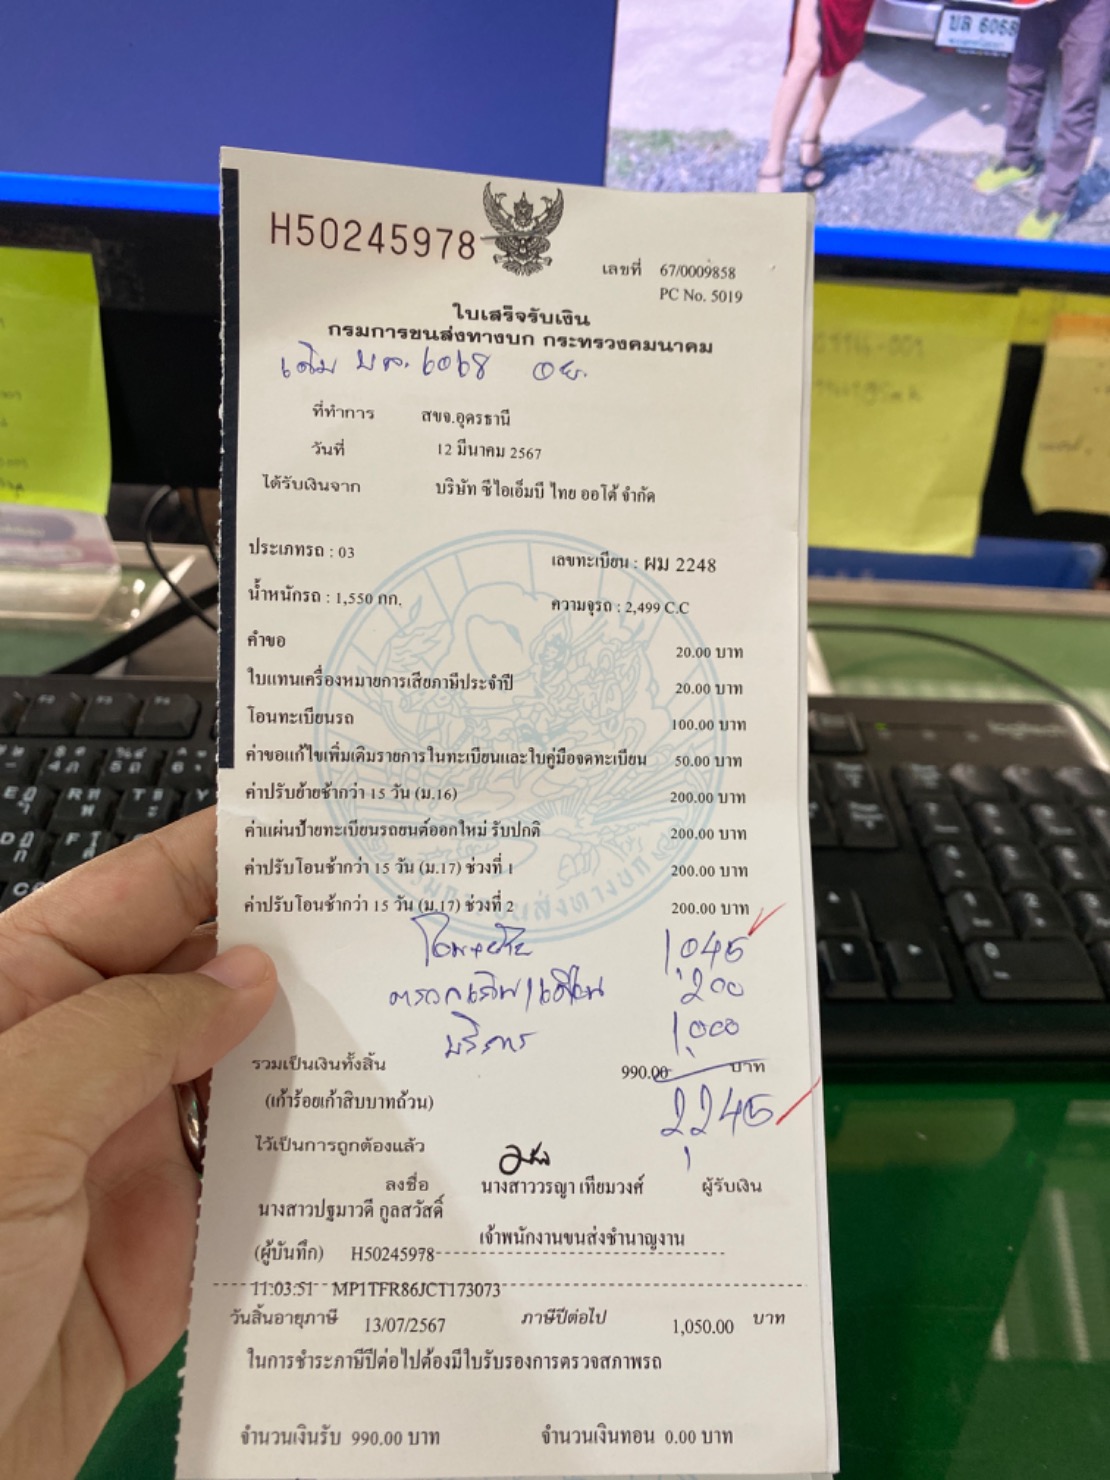 บล 6068
H50245978
เลขที่ 67/0009858
PC No. 5019
ใบเสร็จรับเงิน
กรมการขนส่งทางบก กระทรวงคมนาคม
เดิม บล. 6068 อย.
ที่ทำการ สขจ.อุดรธานี
วันที่ 12 มีนาคม 2567
ได้รับเงินจาก บริษัท ซีไอเอ็มบี ไทย ออโต้ จำกัด
ประเภทรถ : 03 เลขทะเบียน : ผม 2248
น้ำหนักรถ : 1,550 กก. ความจุรถ : 2,499 C.C
คำขอ 20.00 บาท
ใบแทนเครื่องหมายการเสียภาษีประจำปี 20.00 บาท
โอนทะเบียนรถ 100.00 บาท
ค่าขอแก้ไขเพิ่มเติมรายการในทะเบียนและใบคู่มือจดทะเบียน 50.00 บาท
ค่าปรับย้ายช้ากว่า 15 วัน (ม.16) 200.00 บาท
ค่าแผ่นป้ายทะเบียนรถยนต์ออกใหม่ รับปกติ 200.00 บาท
ค่าปรับโอนช้ากว่า 15 วัน (ม.17) ช่วงที่ 1 200.00 บาท
ค่าปรับโอนช้ากว่า 15 วัน (ม.17) ช่วงที่ 2 200.00 บาท
โอน+ย้าย 1,045
200
บริการ 1,000
รวมเป็นเงินทั้งสิ้น 990.00 บาท
(เก้าร้อยเก้าสิบบาทถ้วน) 2,245
ไว้เป็นการถูกต้องแล้ว
ลงชื่อ นางสาววรญา เทียมวงศ์ ผู้รับเงิน
นางสาวปฐมาวดี กูลสวัสดิ์
เจ้าพนักงานขนส่งชำนาญงาน
(ผู้บันทึก) H50245978
11:03:51 MP1TFR86JCT173073
วันสิ้นอายุภาษี 13/07/2567 ภาษีปีต่อไป 1,050.00 บาท
ในการชำระภาษีปีต่อไปต้องมีใบรับรองการตรวจสภาพรถ
จำนวนเงินรับ 990.00 บาท จำนวนเงินทอน 0.00 บาท